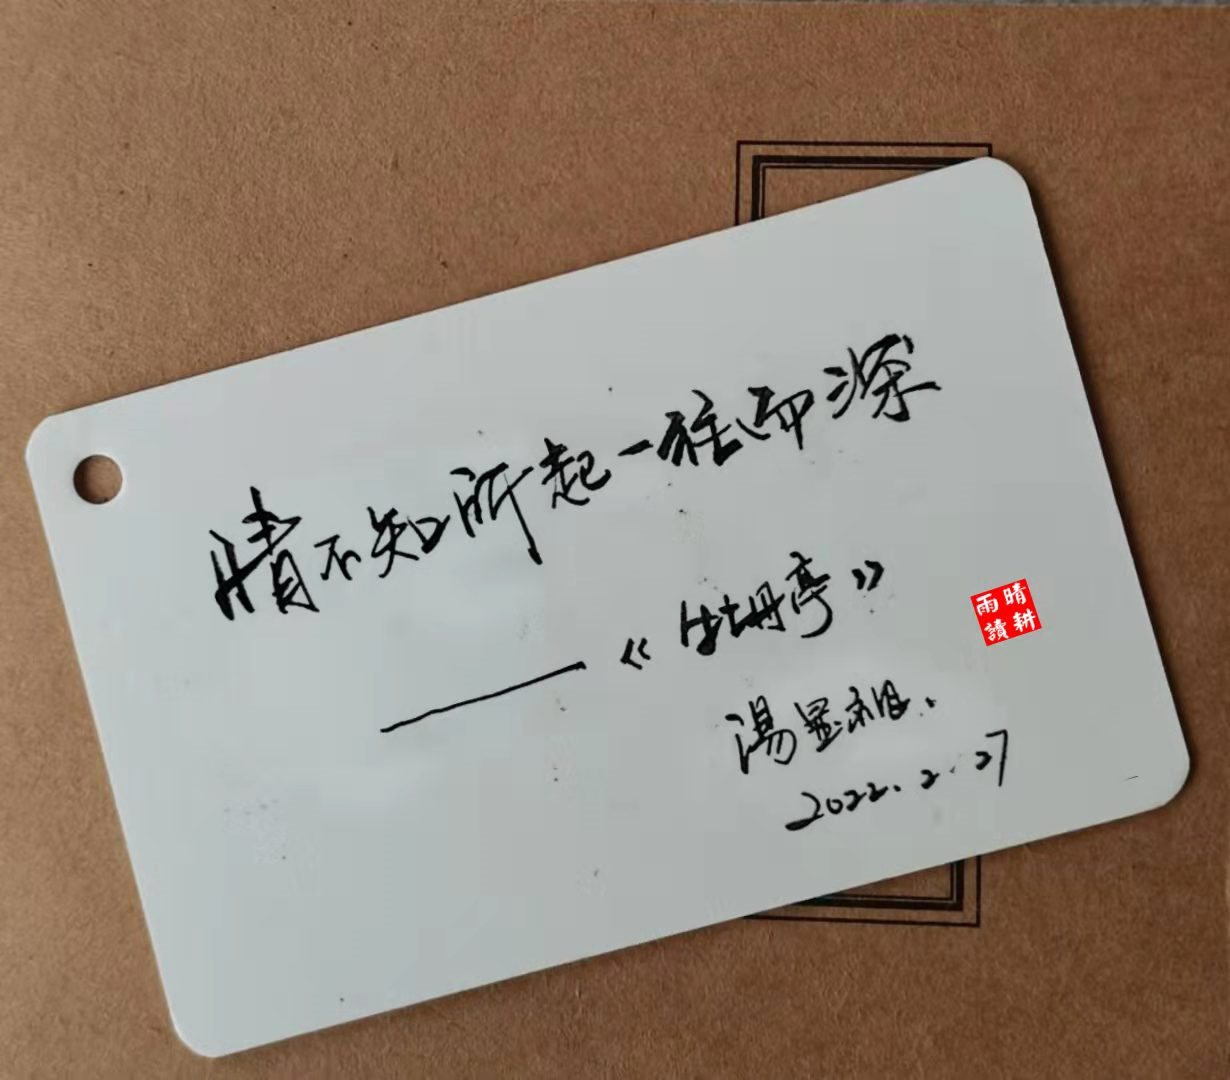 情不知所起一往而深
——《牡丹亭》
湯显祖.
2022.2.27
晴耕
雨讀